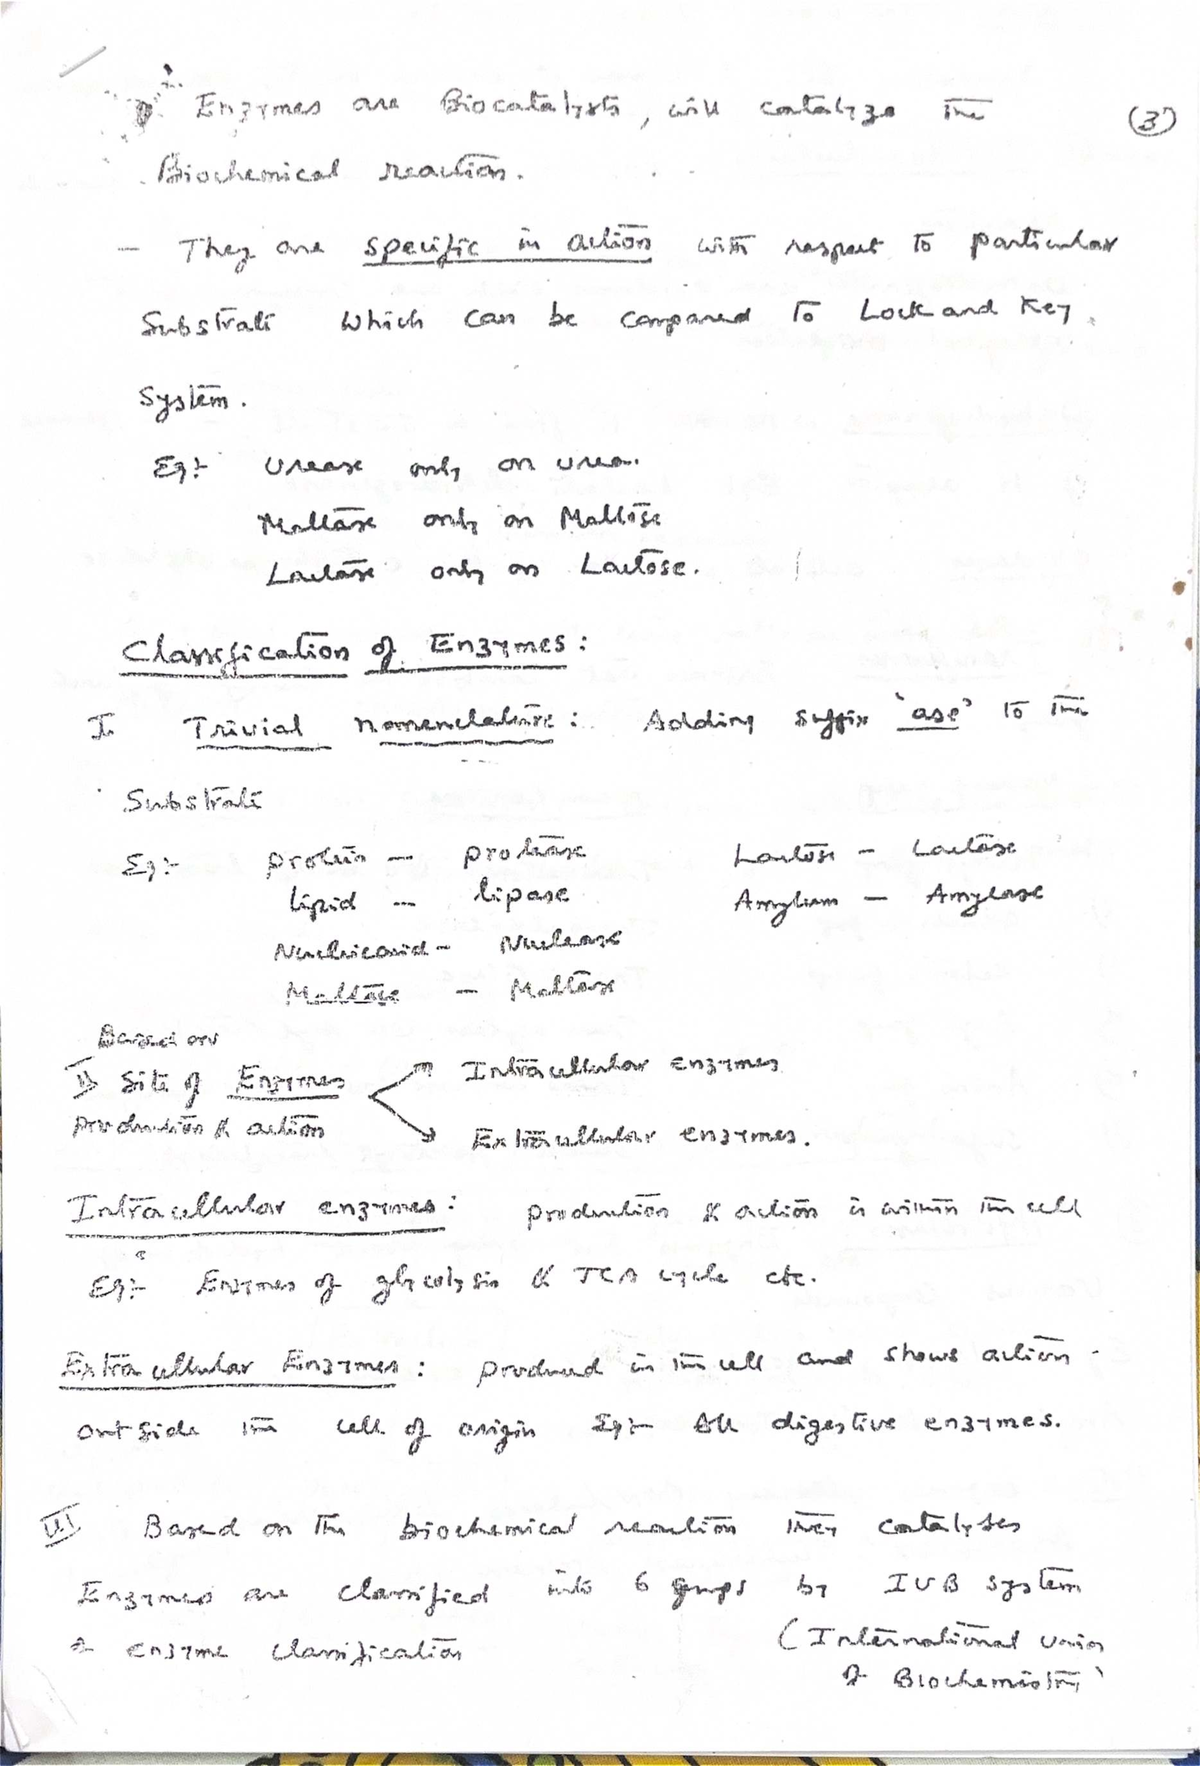 Enzymes are Biocatalysts, will catalyze the
(3)
Biochemical reaction.
- They are specific in action with respect to particular
Substrate which can be compared to Lock and Key
System.
Eg:- Urease only on urea.
Maltase only on Maltose
Lactase only on Lactose.
Classification of Enzymes:
I. Trivial nomenclature: Adding suffix 'ase' to the
Substrate
Eg:- protein - protease Lactose - Lactase
lipid - lipase Amylum - Amylase
Nucleicacid - Nuclease
Maltose - Maltase
Based on
II Site of Enzymes Intracellular enzymes
production & action Extracellular enzymes.
Intracellular enzymes: production & action is within the cell
Eg:- Enzymes of glycolysis & TCA cycle etc.
Extracellular Enzymes: produced in the cell and shows action
outside the cell of origin Eg:- All digestive enzymes.
III Based on the biochemical reaction they catalyses
Enzymes are classified into 6 groups by IUB system
of enzyme classification (International union
of Biochemistry)